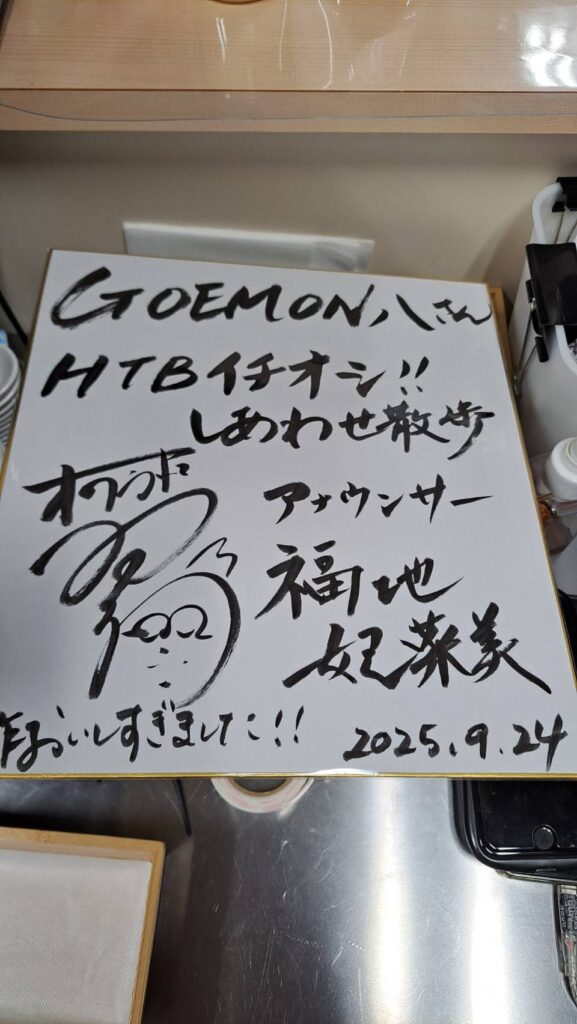 GOEMON八さん
HTBイチオシ!!
しあわせ散歩
アナウンサー
福地
妃菜美
おいしすぎました!!
2025.9.24